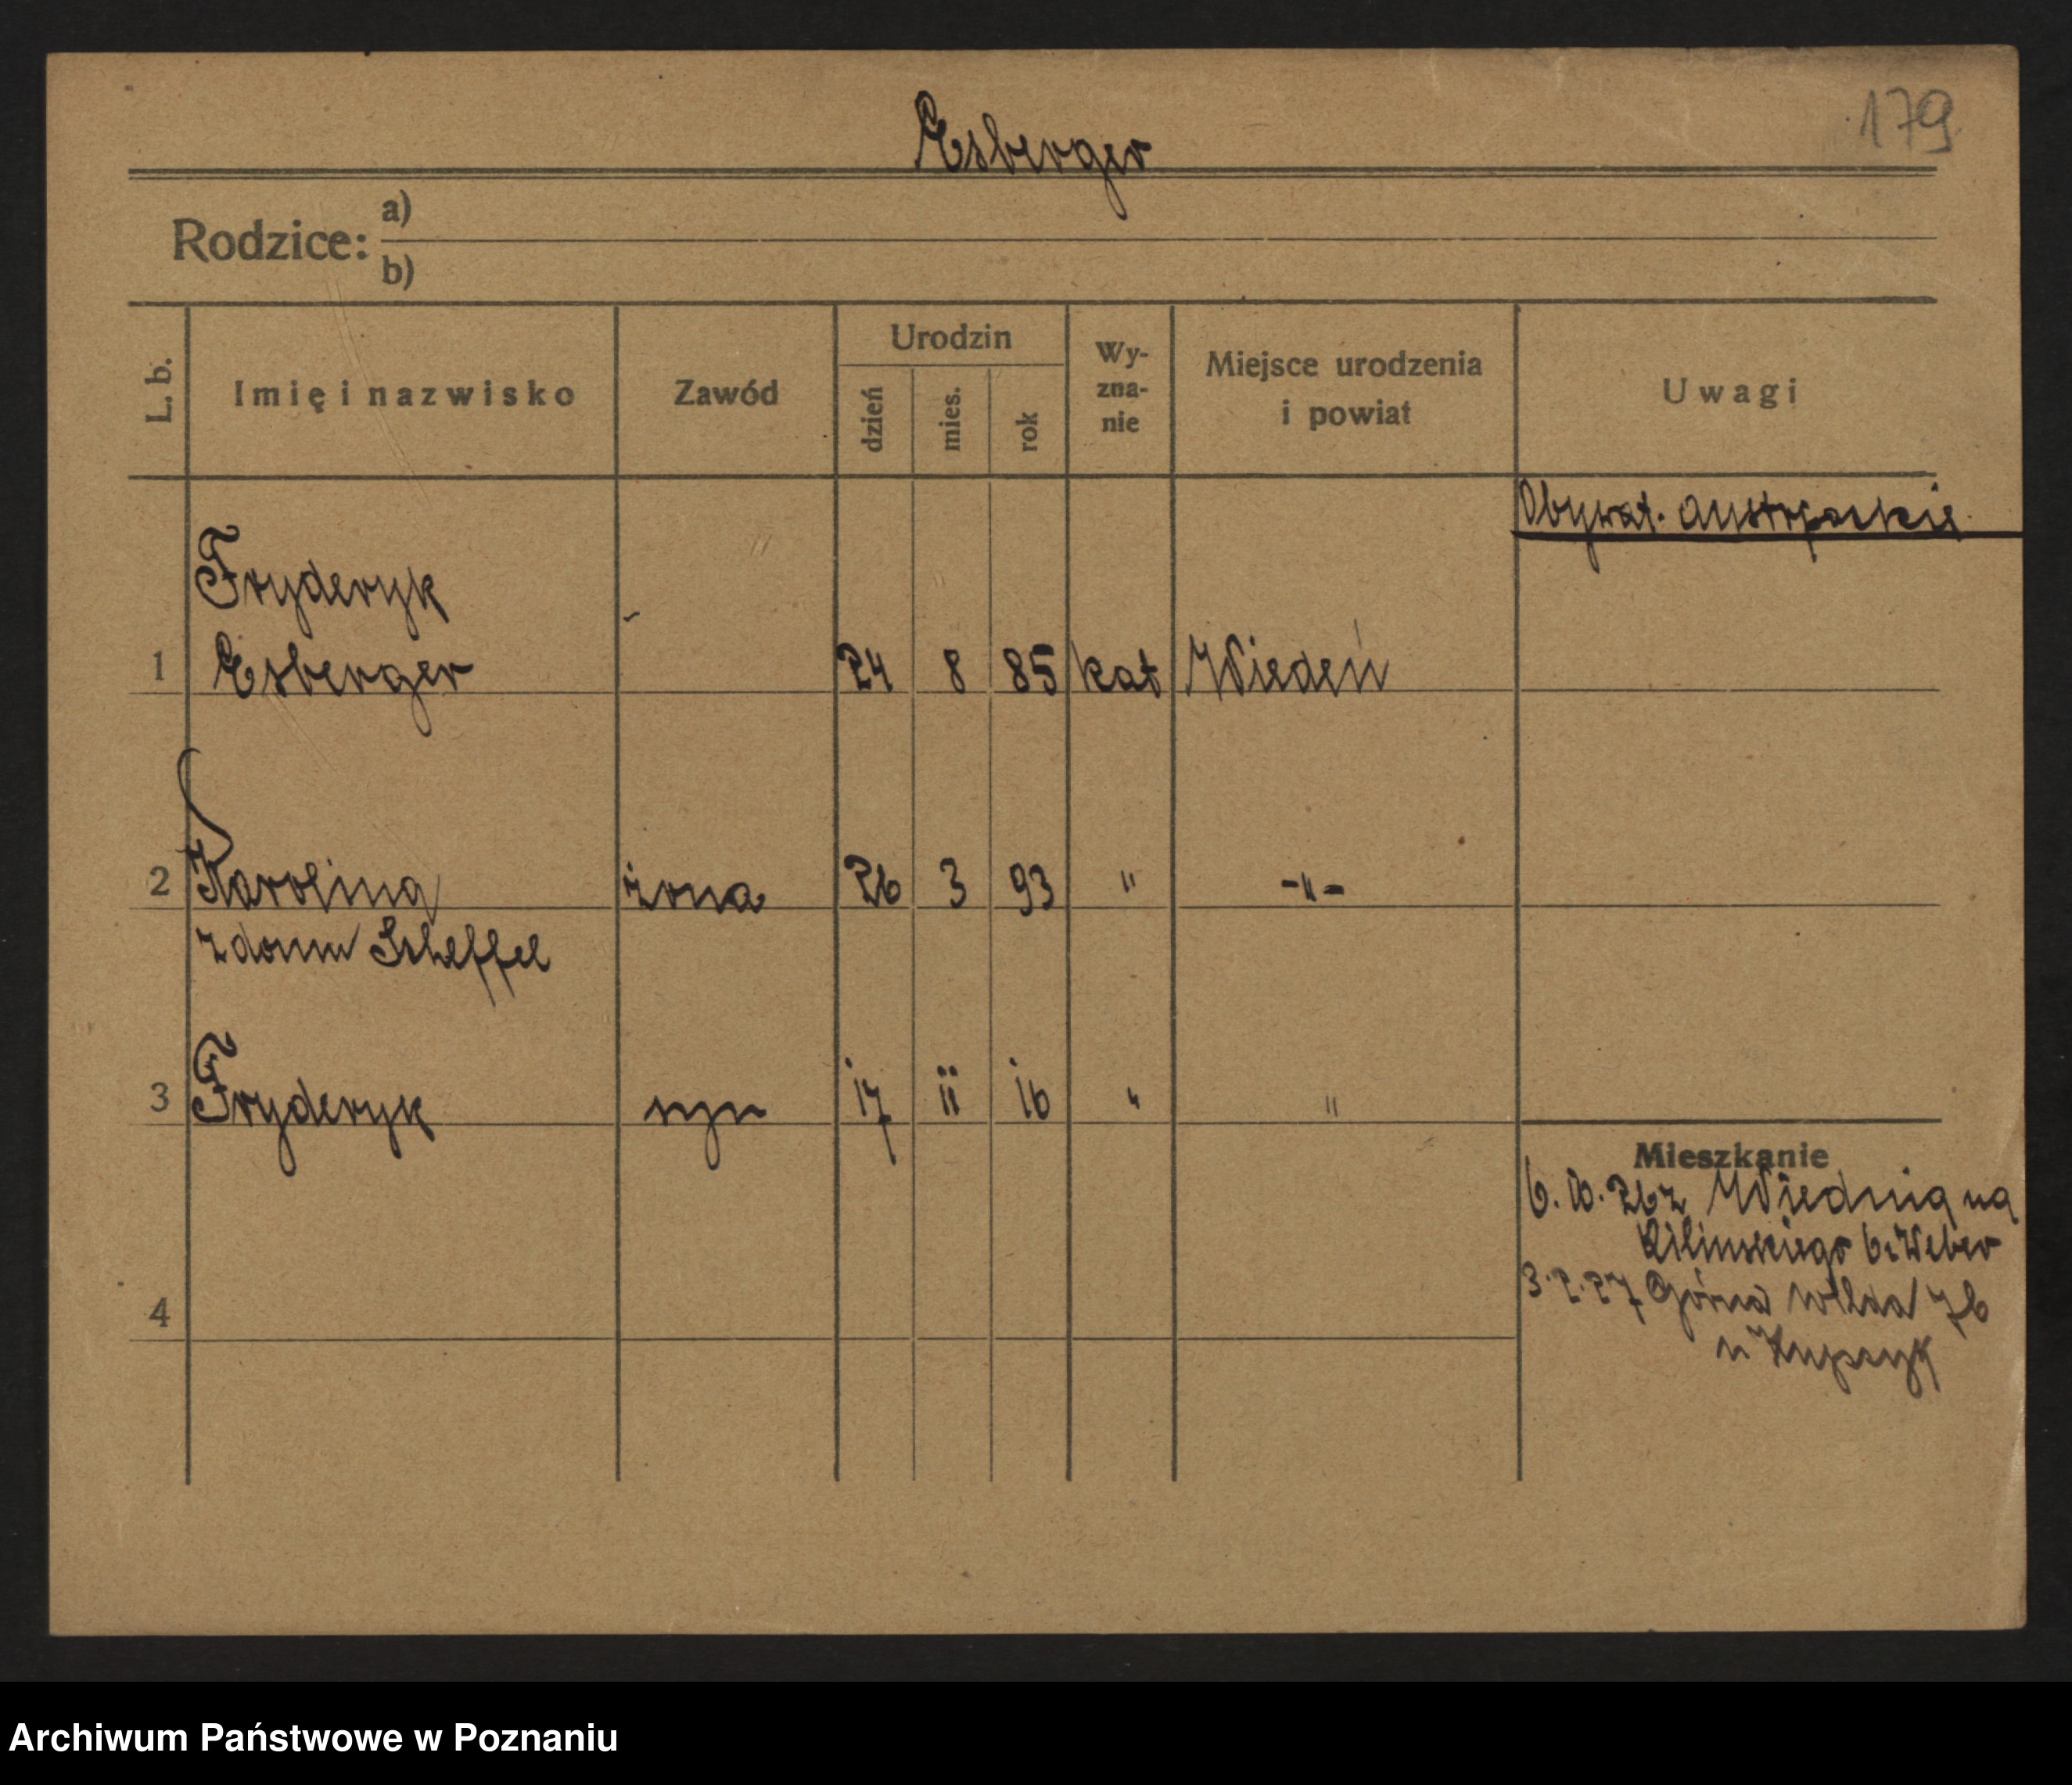 179
Esberger
Rodzice: a)
b)
L. b. Imię i nazwisko Zawód Urodzin dzień mies. rok Wy-zna-nie Miejsce urodzenia i powiat Uwagi
Obywat. austrjackie
Fryderyk
1 Esberger 24 8 85 kat Wiedeń
2 Karolina żona 26 3 93 " -"-
z domu Scheffel
3 Fryderyk syn 17 11 16 " "
Mieszkanie
6. 10. 26 z Wiednia na
Kilinskiego 6 Weber
3. 2. 27 Górna Wilda 76
4
u Kupczyk
Archiwum Państwowe w Poznaniu